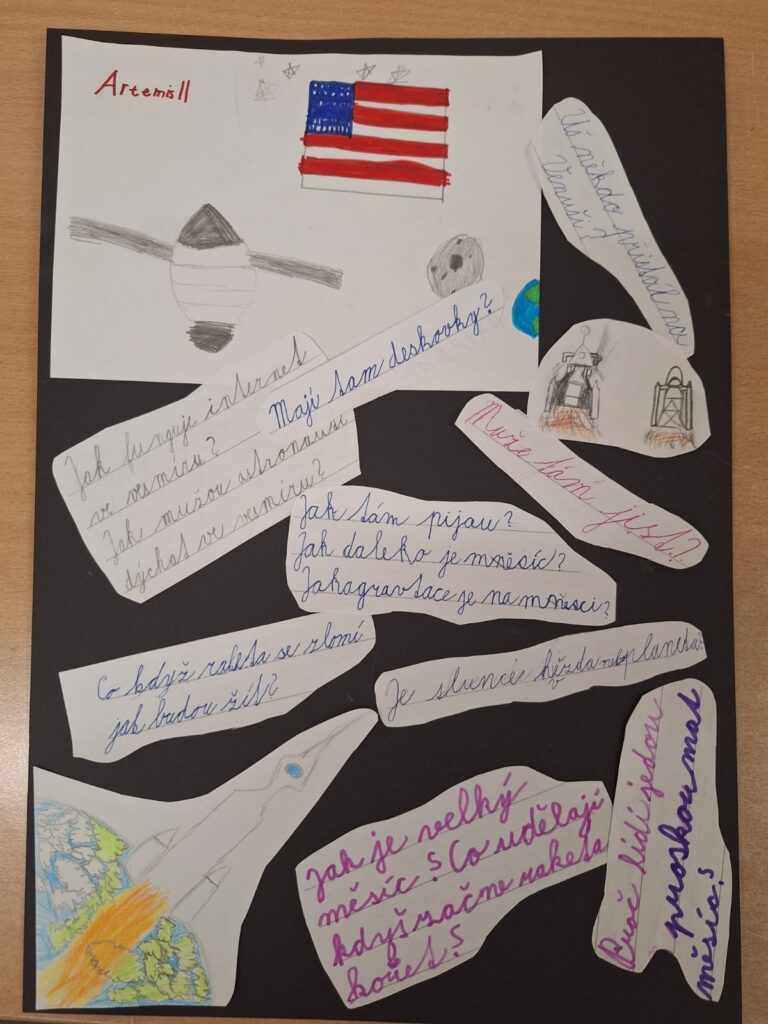 Artemis II
Už někdo přistál na
Venuši?
Mají tam deskovky?
Jak funguje internet
ve vesmíru?
Jak mužou astronauti
dýchat ve vesmíru?
Muže tám jist?
Jak tám pijou?
Jak daleko je mněsíc?
Jaka gravtace je na mněsci?
Co když raketa se zlomí
jak budou žít?
Je slunce hězda nebo planeta?
v
Jak je velký
měsíc? Co udělají
kdyš začne raketa
kouřet?
Proč lidi jedou
měsíc?